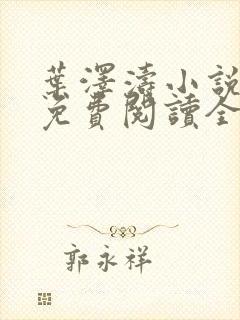 葉澤濤小説
免費閱讀全
郭永祥